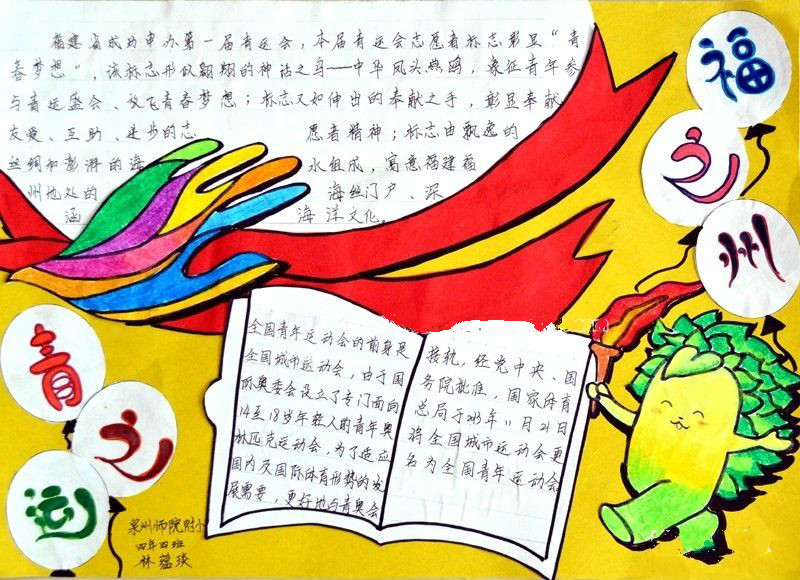 福建省成功申办第一届青运会，本届青运会志愿者标志彰显“青
春梦想”，该标志形似翱翔的神话之鸟——中华凤头燕鸥，象征青年参
与青运盛会、放飞青春梦想；标志又如伸出的奉献之手，彰显奉献
友爱、互助、进步的志 愿者精神；标志由飘逸的
丝绸和澎湃的海 水组成，寓意福建福
州地处的 海丝门户、深
涵 海洋文化。
福
之
州
青
之
运
全国青年运动会的前身是
全国城市运动会，由于国
际奥委会设立了专门面向
14至18岁年轻人的青年奥
林匹克运动会，为了适应
国内及国际体育形势的发
展需要，更好地与青奥会
接轨，经党中央、国
务院批准，国家体育
总局于2013年11月21日
将全国城市运动会更
名为全国青年运动会
泉州师院附小
四年四班
林蕴琰